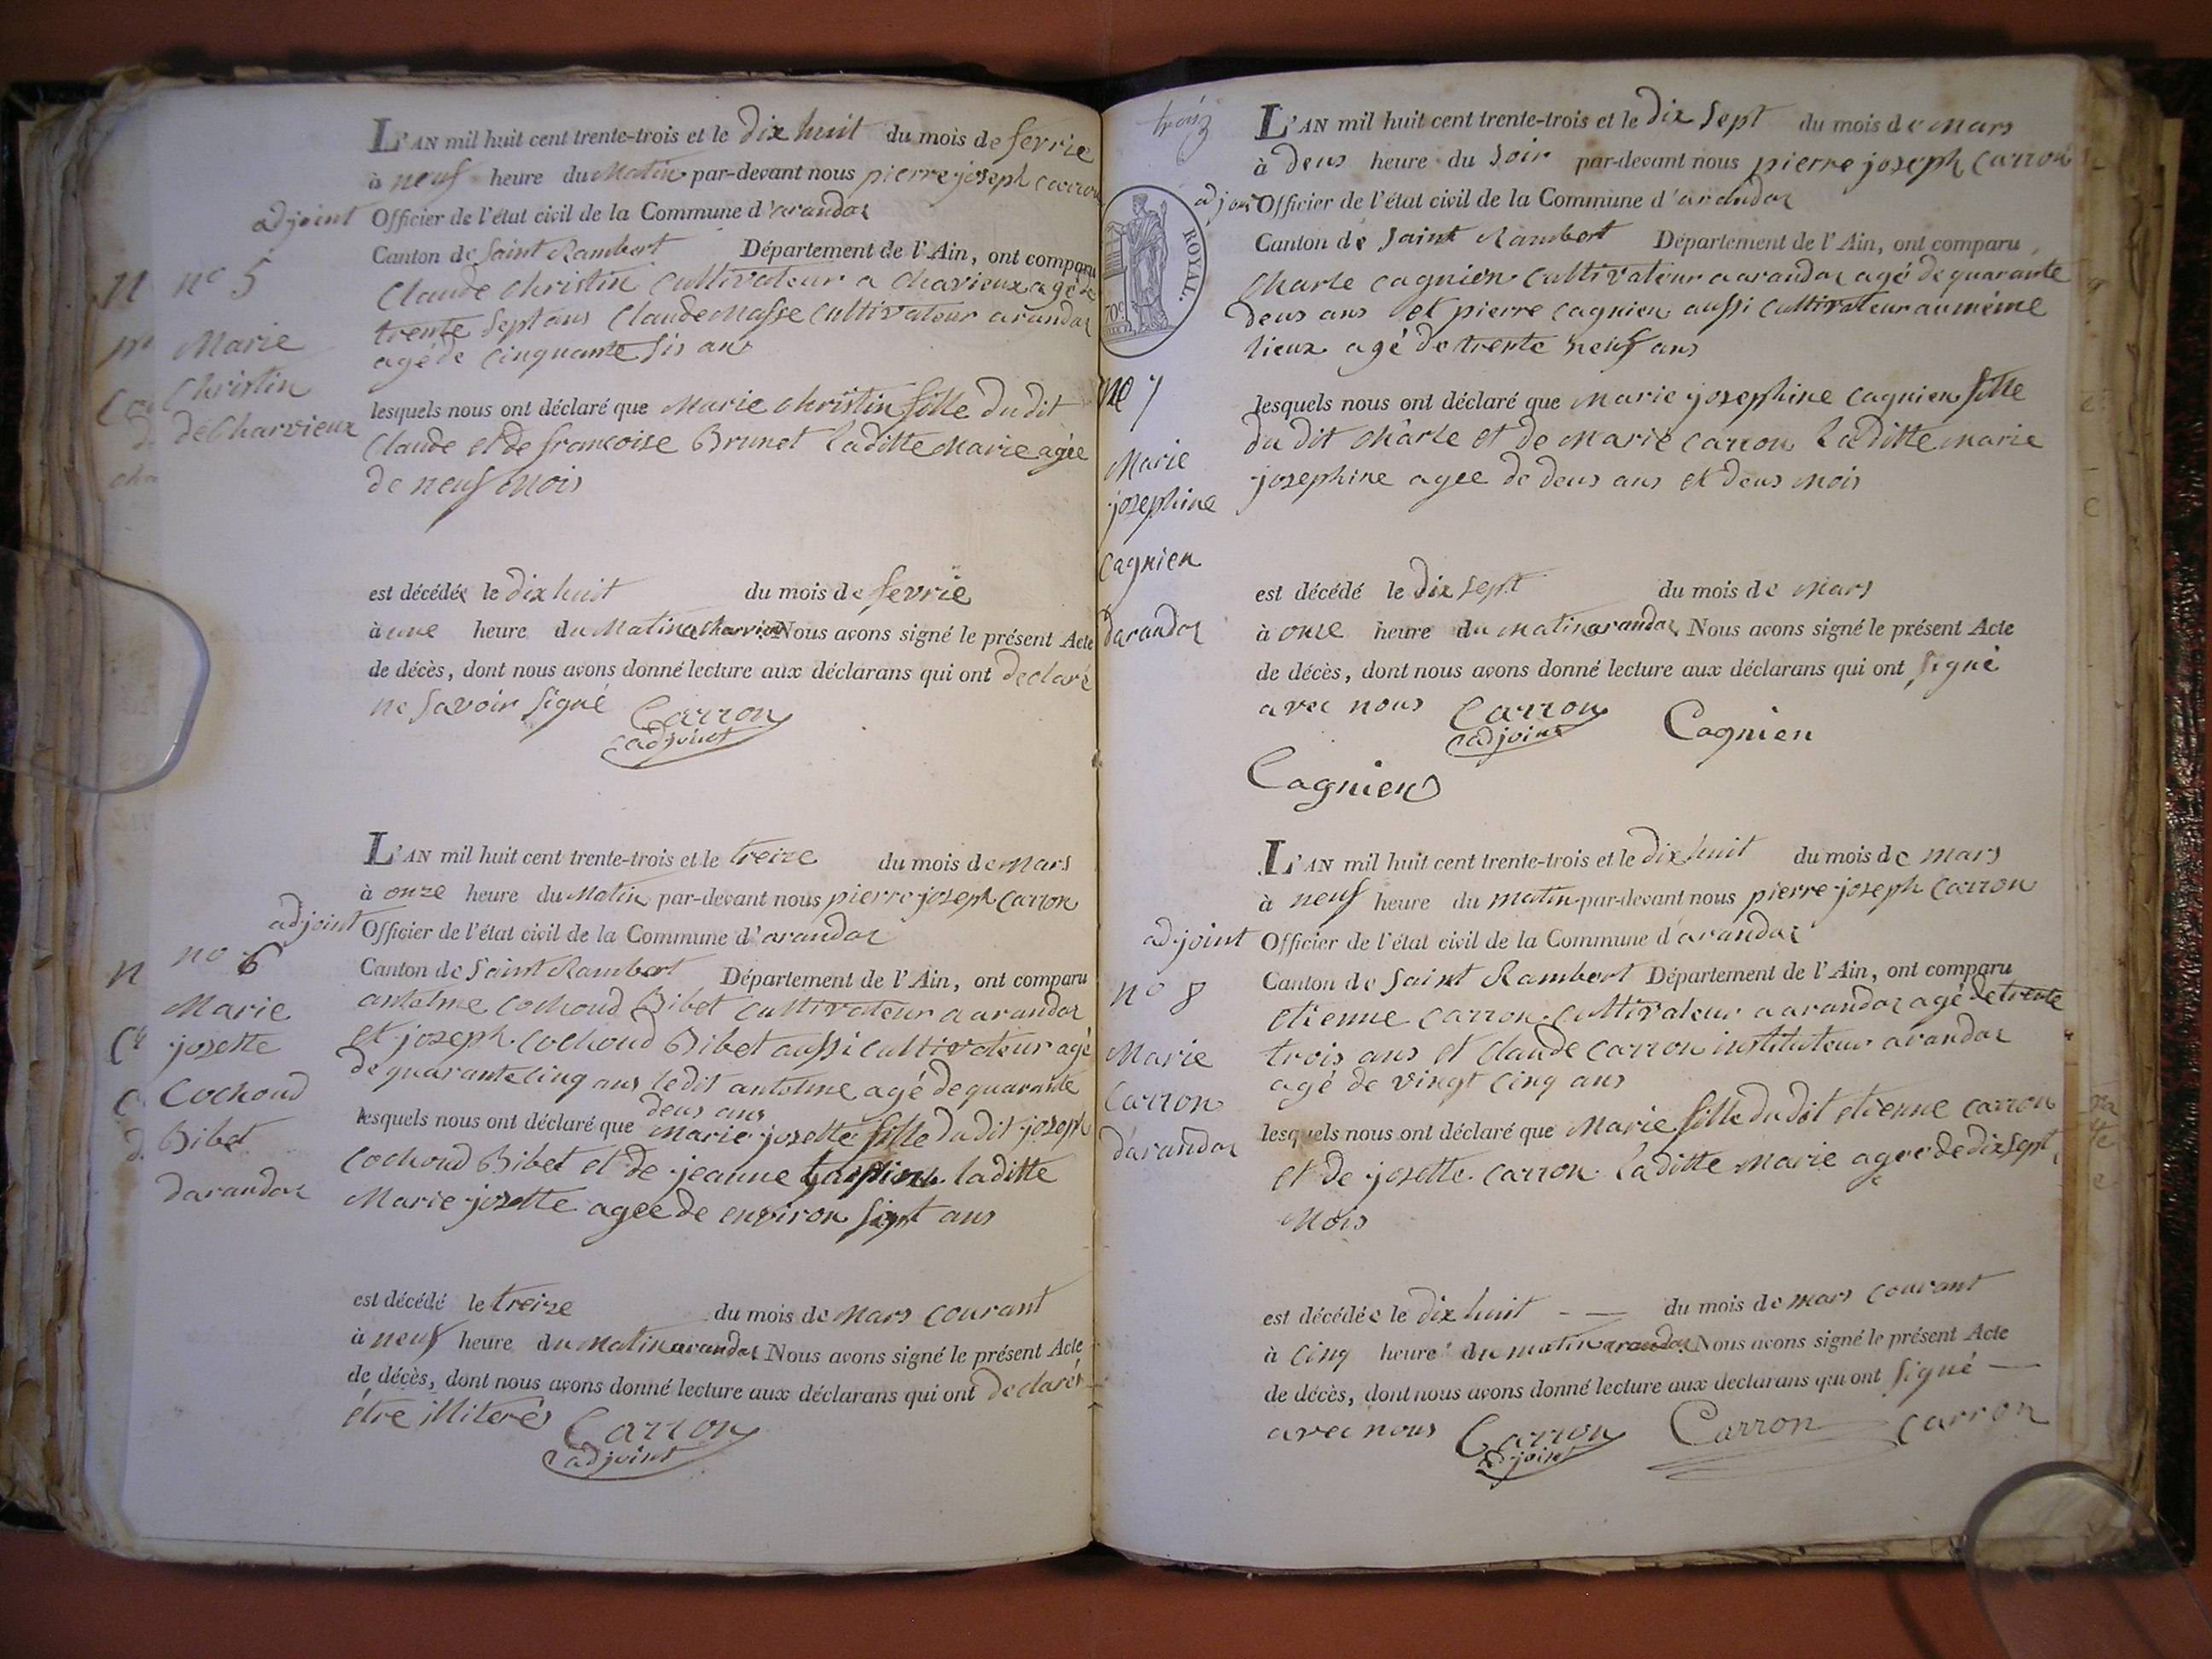 L'AN mil huit cent trente-trois et le dix huit du mois de fevrie
à neuf heure du Matin par-devant nous pierre joseph carron
adjoint Officier de l'état civil de la Commune d'arandas
Canton de Saint Rambert Département de l'Ain, ont comparu
Claude Christin Cultivateur a Charvieux agé de
trente Sept ans Claude Masse Cultivateur arandas
agé de Cinquante Sis ans
no 5
Marie
Christin
de Charvieux
lesquels nous ont déclaré que Marie Christin fille du dit
Claude et de francoise Brunet laditte Marie agée
de neuf Mois
est décédée le dix huit du mois de fevrie
à une heure du Matin a Charvieux Nous avons signé le présent Acte
de décès, dont nous avons donné lecture aux déclarans qui ont declaré
ne Savoir Signé Carron
adjoint
L'AN mil huit cent trente-trois et le treize du mois de Mars
à onze heure du Matin par-devant nous pierre joseph Carron
adjoint Officier de l'état civil de la Commune d'arandas
Canton de Saint Rambert Département de l'Ain, ont comparu
antelme Cochoud Bibet Cultivateur a arandas
et joseph Cochoud Bibet aussi Cultivateur agé
de quarante Cinq ans ledit antelme agé de quarante
deus ans
no 6
Marie
josette
Cochoud
Bibet
darandas
lesquels nous ont déclaré que Marie josette fille du dit joseph
Cochoud Bibet et de jeanne laditte
Marie josette agee de environ Sept ans
est décédé le treize du mois de Mars Courant
à neuf heure du Matin arandas Nous avons signé le présent Acte
de décès, dont nous avons donné lecture aux déclarans qui ont declarés
être illiterés Carron
adjoint
trois
L'AN mil huit cent trente-trois et le dix Sept du mois de Mars
à deus heure du Soir par-devant nous pierre joseph Carron
adjoint Officier de l'état civil de la Commune d'arandas
ROYAL.
70c.
Canton de Saint Rambert Département de l'Ain, ont comparu
Charle Cagnien Cultivateur a arandas agé de quarante
deus ans et pierre Cagnien aussi Cultivateur au même
lieux agé de trente neuf ans
no 7
Marie
josephine
Cagnien
darandas
lesquels nous ont déclaré que Marie josephine Cagnien fille
du dit Charle et de Marie Carron laditte Marie
josephine agee de deus ans et deus Mois
est décédé le dix Sept du mois de Mars
à onze heure du matin arandas Nous avons signé le présent Acte
de décès, dont nous avons donné lecture aux déclarans qui ont Signé
avec nous Carron Cagnien
adjoint
Cagnien
L'AN mil huit cent trente-trois et le dix huit du mois de mars
à neuf heure du matin par-devant nous pierre joseph Carron
adjoint Officier de l'état civil de la Commune d'arandas
Canton de Saint Rambert Département de l'Ain, ont comparu
etienne Carron Cultivateur a arandas agé de trente
trois ans et Claude Carron instituteur arandas
agé de vingt Cinq ans
no 8
Marie
Carron
darandas
lesquels nous ont déclaré que Marie fille du dit etienne Carron
et de josette Carron laditte Marie agee de dix Sept
Mois
est décédée le dix huit du mois de mars Courant
à Cinq heure du matin arandas Nous avons signé le présent Acte
de décès, dont nous avons donné lecture aux déclarans qui ont Signé
avec nous Carron Carron Carron
adjoint